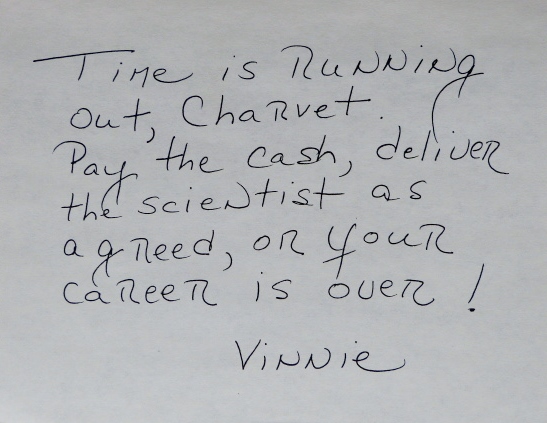 Time is Running
out, Charvet.
Pay the cash, deliver
the scientist as
agreed, or your
career is over!
Vinnie